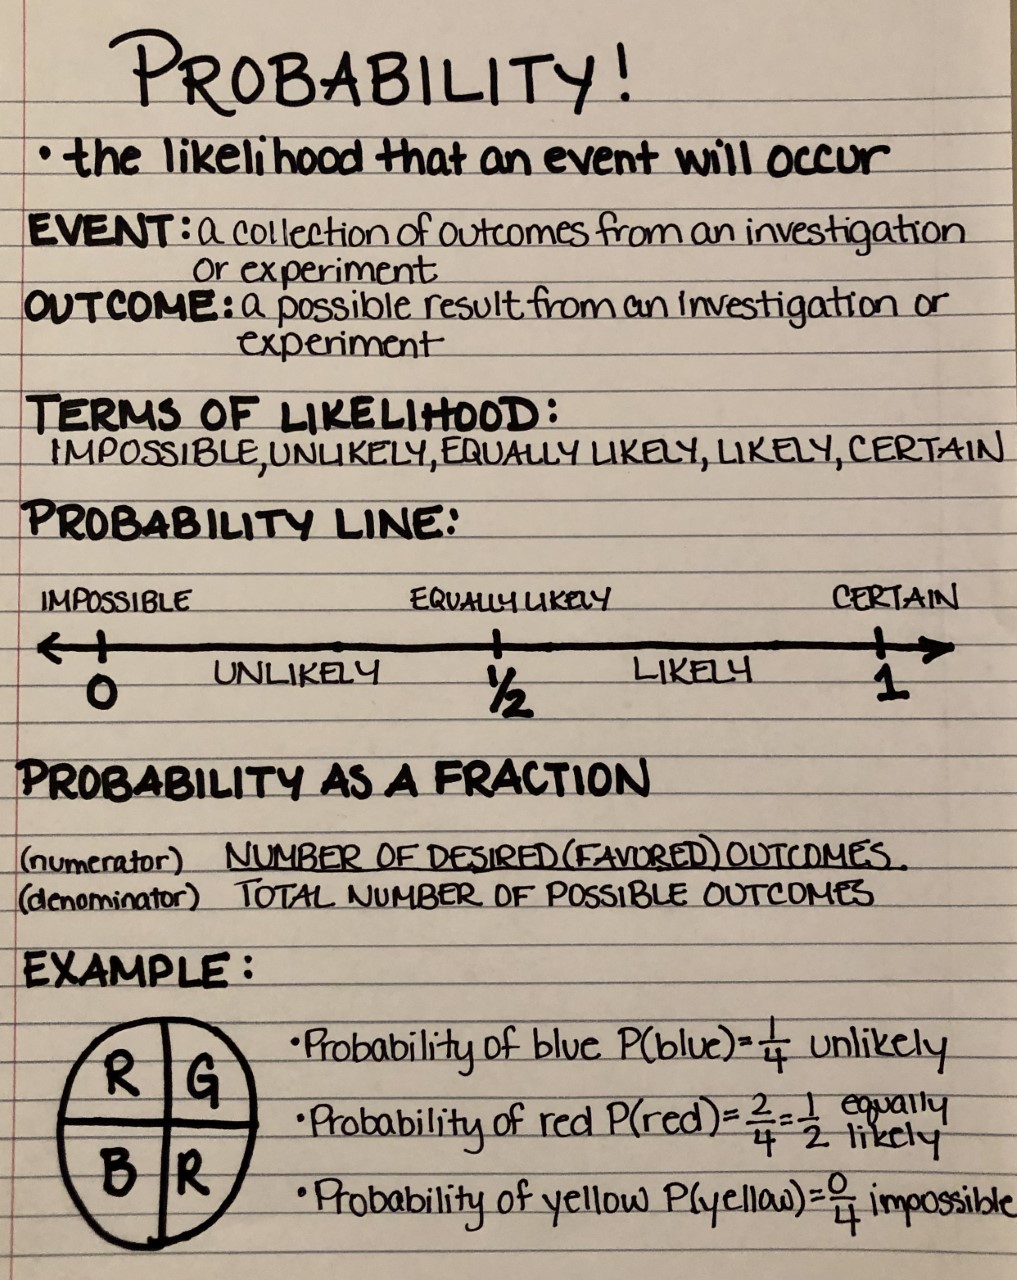 PROBABILITY!
• the likelihood that an event will occur
EVENT: a collection of outcomes from an investigation
or experiment
OUTCOME: a possible result from an investigation or
experiment
TERMS OF LIKELIHOOD:
IMPOSSIBLE, UNLIKELY, EQUALLY LIKELY, LIKELY, CERTAIN
PROBABILITY LINE:
IMPOSSIBLE EQUALLY LIKELY CERTAIN
UNLIKELY LIKELY
0 1/2 1
PROBABILITY AS A FRACTION
(numerator) NUMBER OF DESIRED (FAVORED) OUTCOMES
(denominator) TOTAL NUMBER OF POSSIBLE OUTCOMES
EXAMPLE:
R G
B R
• Probability of blue P(blue)= 1/4 unlikely
• Probability of red P(red)= 2/4 = 1/2 equally likely
• Probability of yellow P(yellow)= 0/4 impossible